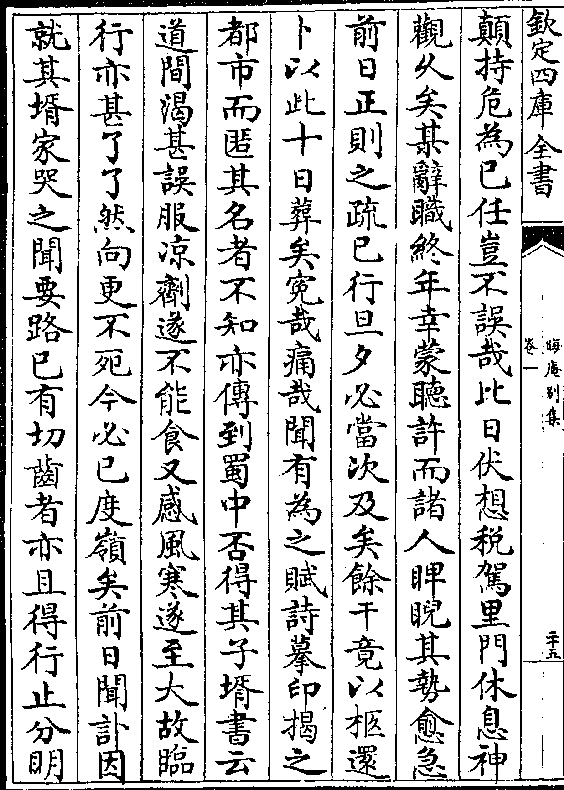 欽定四庫全書
晦庵別集
卷一
二十五
顛持危為已任豈不誤哉比日伏想税駕里門休息神
觀久矣某辭職終年幸蒙聽許而諸人睥睨其勢愈急
前日正則之疏已行旦夕必當次及矣餘干竟以柩還
卜以此十日葬矣寃哉痛哉聞有為之賦詩摹印揭之
都市而匿其名者不知亦傳到蜀中否得其子壻書云
道間渴甚誤服凉劑遂不能食又感風寒遂至大故臨
行亦甚了了然向更不死今必已度嶺矣前日聞訃因
就其壻家哭之聞要路已有切齒者亦且得行止分明